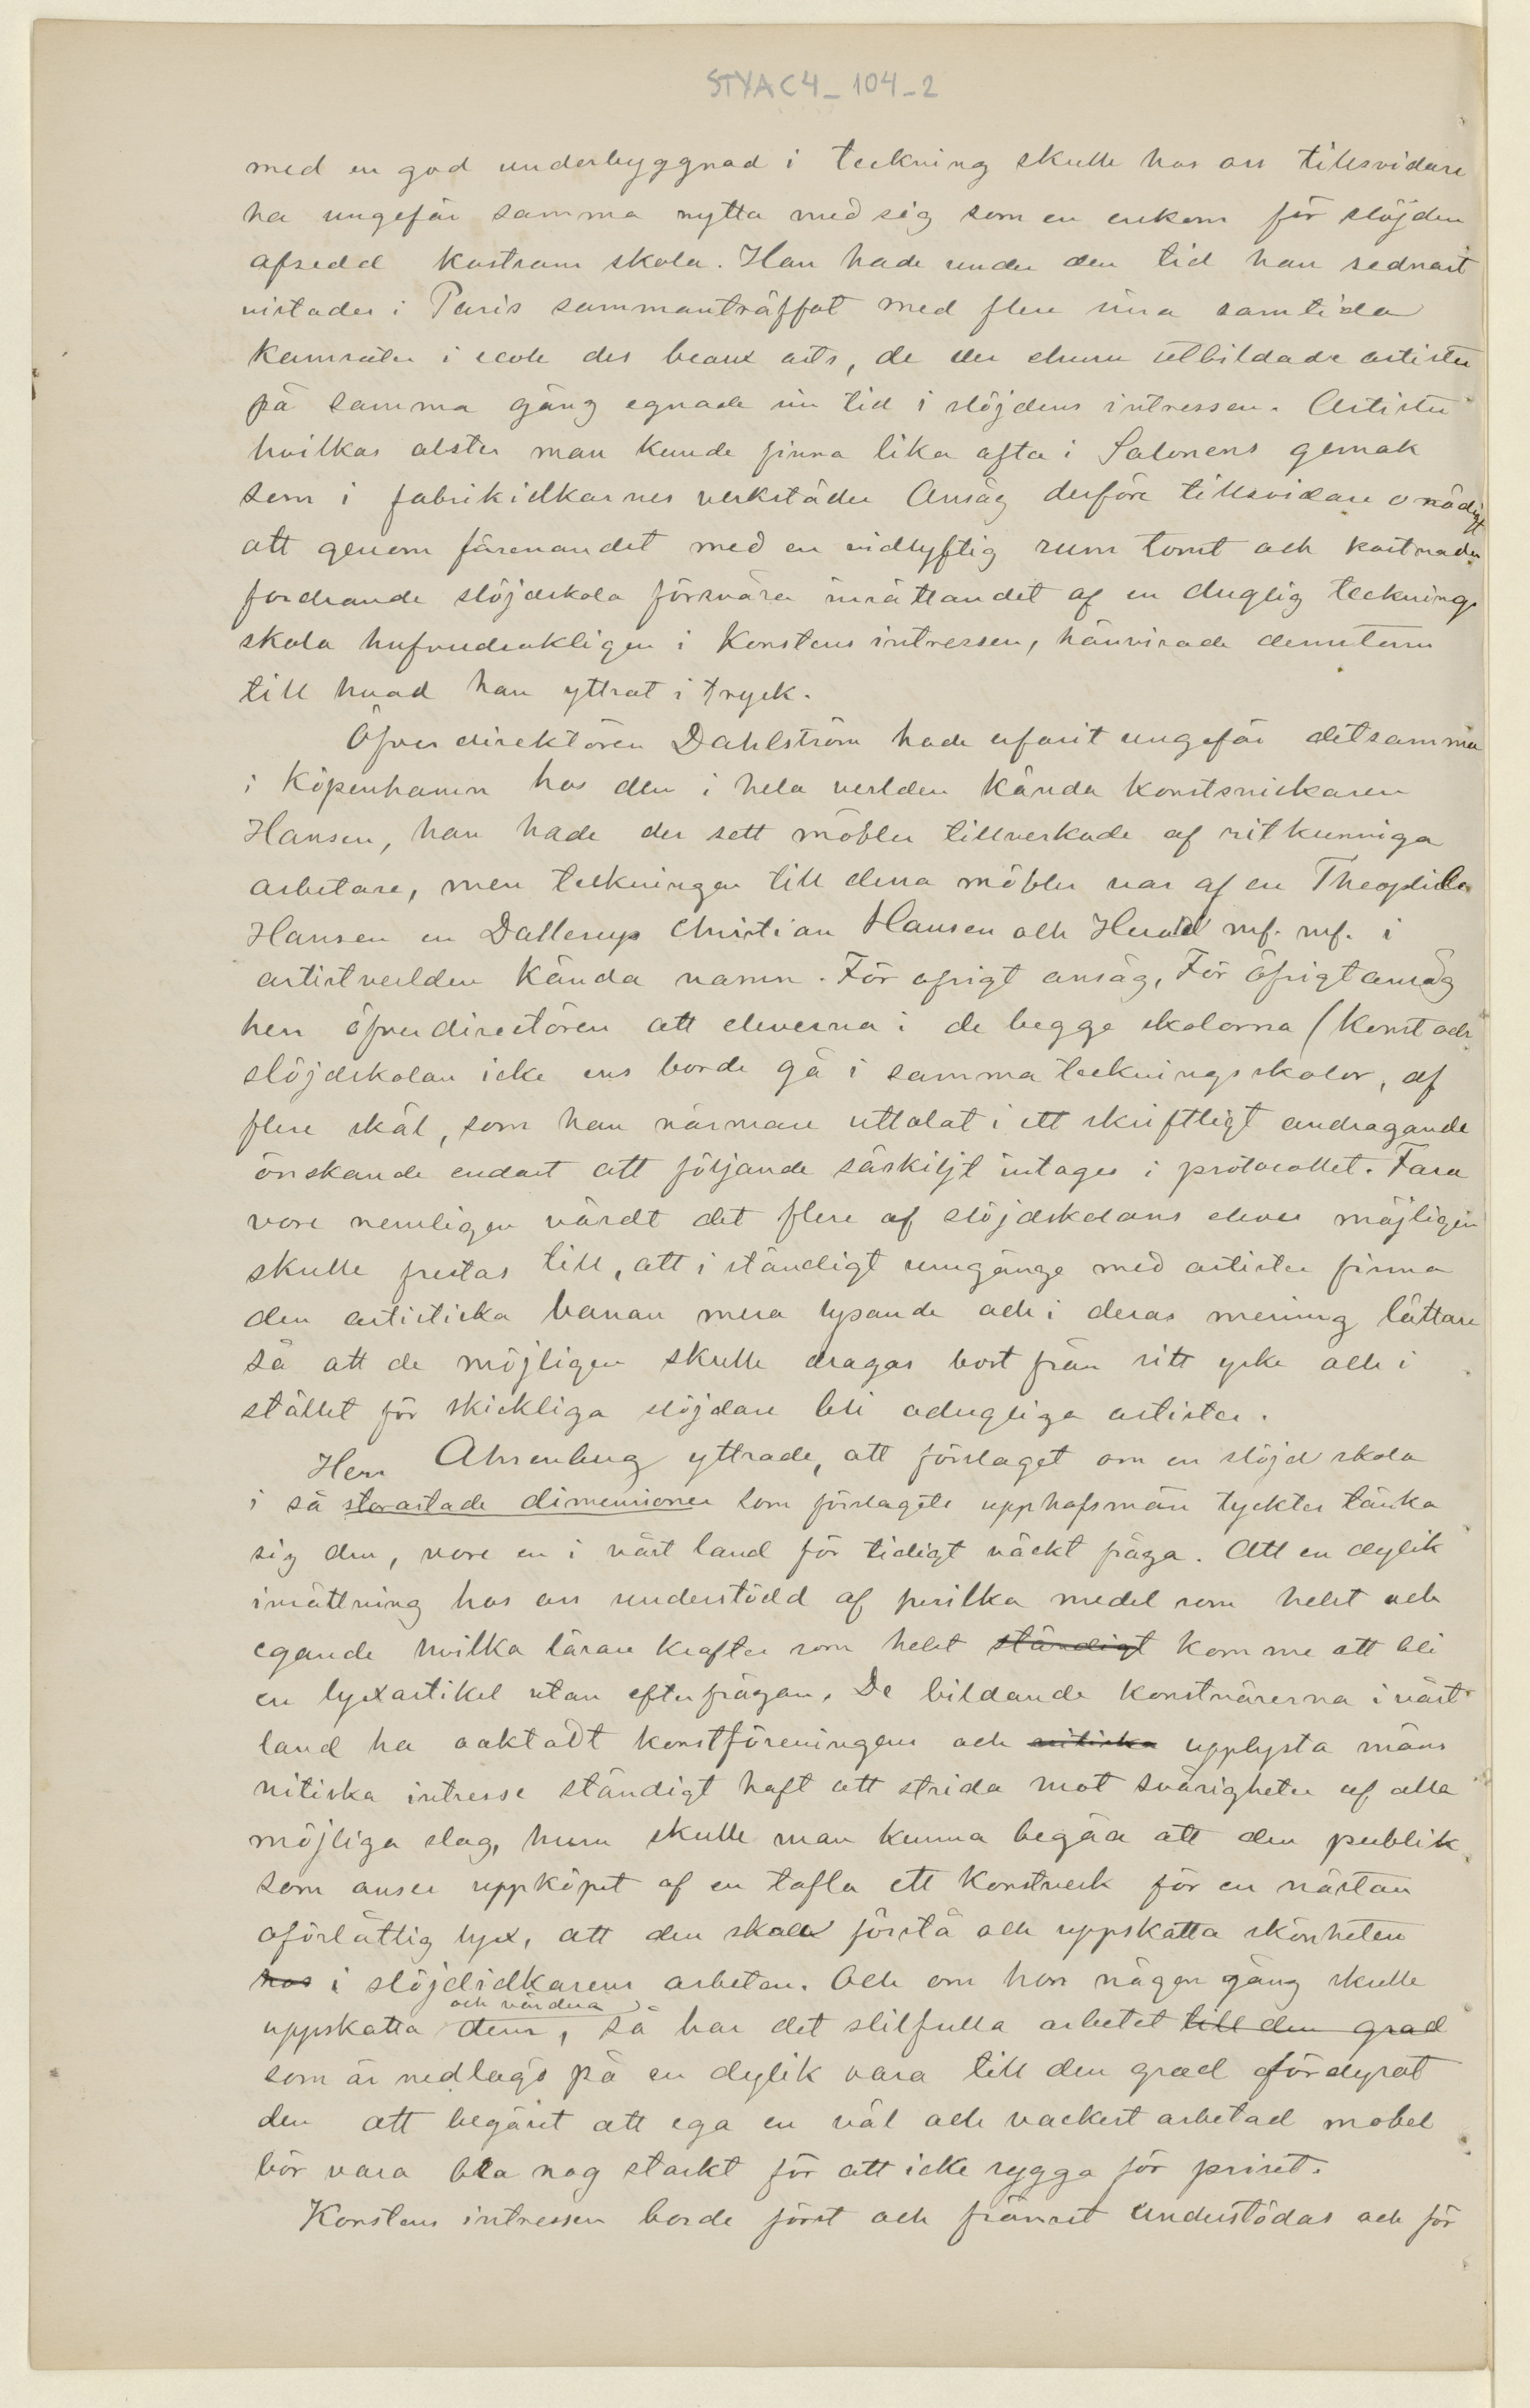 STYAC4_104_2
med en god underbyggnad i teckning skulle hos oss tillsvidare
ha ungefär samma nytta med sig som en enkom för slöjden
afsedd kostsam skola. Han hade under den tid han sednast
vistades i Paris sammanträffat med flere sina samtida
kamrater i ecole des beaux arts, de der ehuru utbildade artister
på samma gång egnade sin tid i slöjdens intressen. Artister
hvilkas alster man kunde finna lika ofta i Salonens gemak
som i fabrikidkarnes verkstäder Ansåg derföre tillsvidare onödigt
att genom förenandet med en vidlyftig rum tomt och kostnader
fordrande slöjdskola försvåra inrättandet af en duglig tecknings
skola hufvudsakligen i Konstens intressen, hänvisade dessutom
till hvad han yttrat i tryck.
Öfverdirektören Dahlström hade erfarit ungefär detsamma
i Köpenhamn hos den i hela verlden kända konstsnickaren
Hansen, han hade der sett möbler tillverkade af ritkunniga
arbetare, men teckningen till dessa möbler var af en Theophile
Hansen en Dallerup Christian Hansen och Herold mf. mf. i
artistverlden kända namn. För ofrigt ansåg, För öfrigt ansåg
herr öfverdirectören att eleverna i de begge skolorna (Konst och
slöjdskolan icke ens borde gå i samma teckningsskolor, af
flere skäl, som han närmare uttalat i ett skriftligt andragande
önskande endast att följande särskilgt intages i protocollet. Fara
vore nemligen värdt det flere af slöjdskolans elever möjligen
skulle frestas till, att i ständigt umgänge med artister finna
den artistiska banan mera lysande och i deras mening lättare
så att de möjligen skulle dragas bort från sitt yrke och i
stället för skickliga slöjdare bli odugliga artister.
Herr Ahrenberg yttrade, att förslaget om en slöjd skola
i så storartade dimensioner som förslagets upphofsmän tycktes tänka
sig den, vore en i vårt land för tidigt väckt fråga. Att en dylik
inrättning hos oss understödd af hvilka medel som helst och
egande hvilka lärare krafter som helst ständigt komme att bli
en lyxartikel utan efterfrågan. De bildande konstnärerna i vårt
land ha oaktadt konstföreningens och nitiska upplysta mäns
nitiska intresse ständigt haft att strida mot svårigheter af alla
möjliga slag, huru skulle man kunna begära att den publik
som anser uppköpet af en tafla ett konstverk för en nästan
oförlåtlig lyx, att den skall förstå och uppskatta skönheten
hos i slöjdidkarens arbeten. Och om hon någon gång skulle
och värdera
uppskatta dem, så har det stilfulla arbetet till den grad
som är nedlagd på en dylik vara till den grad fördyrat
den att begäret att ega en väl och vackert arbetad mobel
bör vara bra nog starkt för att icke rygga för priset.
Konstens intressen borde först och främst understödas och för